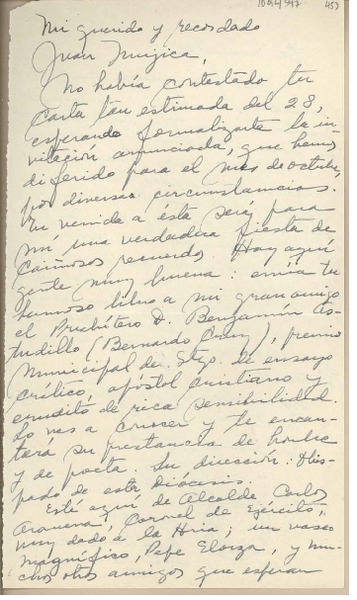 453
Mi querido y recordado
Juan Mujica,
No había contestado tu
carta tan estimada del 28,
esperando formalizarte la in-
vitación anunciada, que hemos
diferido para el mes de octubre,
por diversas circunstancias.
Tu venida a ésta será para
mí una verdadera fiesta de
cariñosos recuerdos. Hay aquí
gente muy buena: envía tu
famoso libro a mi gran amigo
el Presbítero D. Benjamín As-
tudillo (Bernardo Cruz), premio
Municipal de Stgo. de ensayo
crítico, apóstol cristiano y
erudito de rica sensibilidad.
Lo vas a conocer y te encan-
tará su prestancia de hombre
y de poeta. Su dirección: Obis-
pado de esta Diócesis.
Está aquí de Alcalde Carlos
Aravena, Coronel de Ejército,
muy dado a la Hria; un vasco
magnífico, Pepe Elorza, y mu-
chos otros amigos que esperan